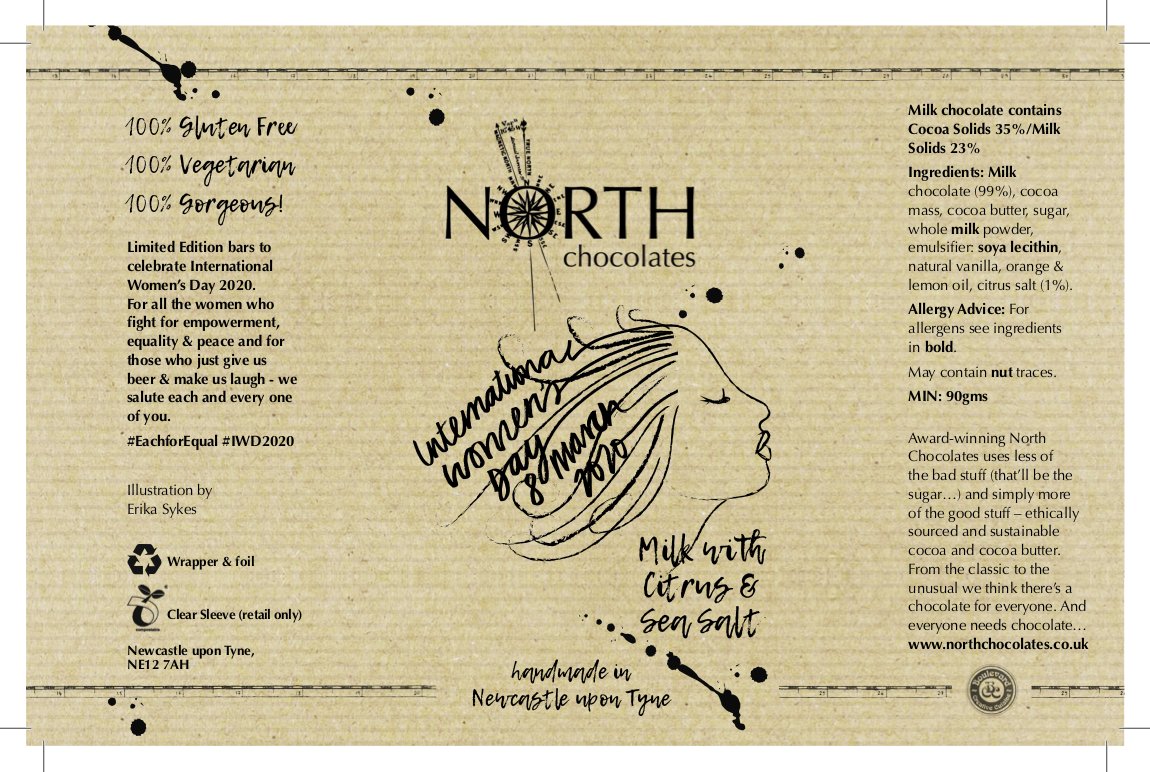 100% Gluten Free
100% Vegetarian
100% Gorgeous!
Limited Edition bars to
celebrate International
Women's Day 2020.
For all the women who
fight for empowerment,
equality & peace and for
those who just give us
beer & make us laugh - we
salute each and every one
of you.
#EachforEqual #IWD2020
Illustration by
Erika Sykes
Wrapper & foil
Clear Sleeve (retail only)
Newcastle upon Tyne,
NE12 7AH
NORTH
chocolates
International
Women's
Day
8 March
2020
Milk with
Citrus &
Sea Salt
handmade in
Newcastle upon Tyne
Milk chocolate contains
Cocoa Solids 35%/Milk
Solids 23%
Ingredients: Milk
chocolate (99%), cocoa
mass, cocoa butter, sugar,
whole milk powder,
emulsifier: soya lecithin,
natural vanilla, orange &
lemon oil, citrus salt (1%).
Allergy Advice: For
allergens see ingredients
in bold.
May contain nut traces.
MIN: 90gms
Award-winning North
Chocolates uses less of
the bad stuff (that'll be the
sugar…) and simply more
of the good stuff – ethically
sourced and sustainable
cocoa and cocoa butter.
From the classic to the
unusual we think there's a
chocolate for everyone. And
everyone needs chocolate…
www.northchocolates.co.uk